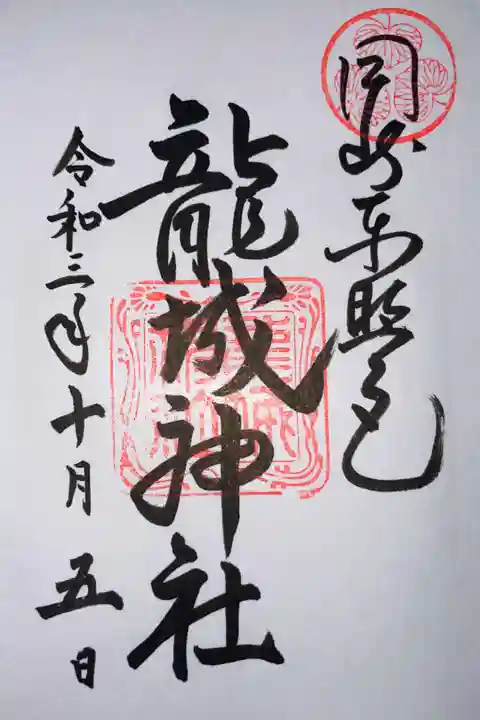 岡崎東照宮
龍城神社
令和三年十月五日